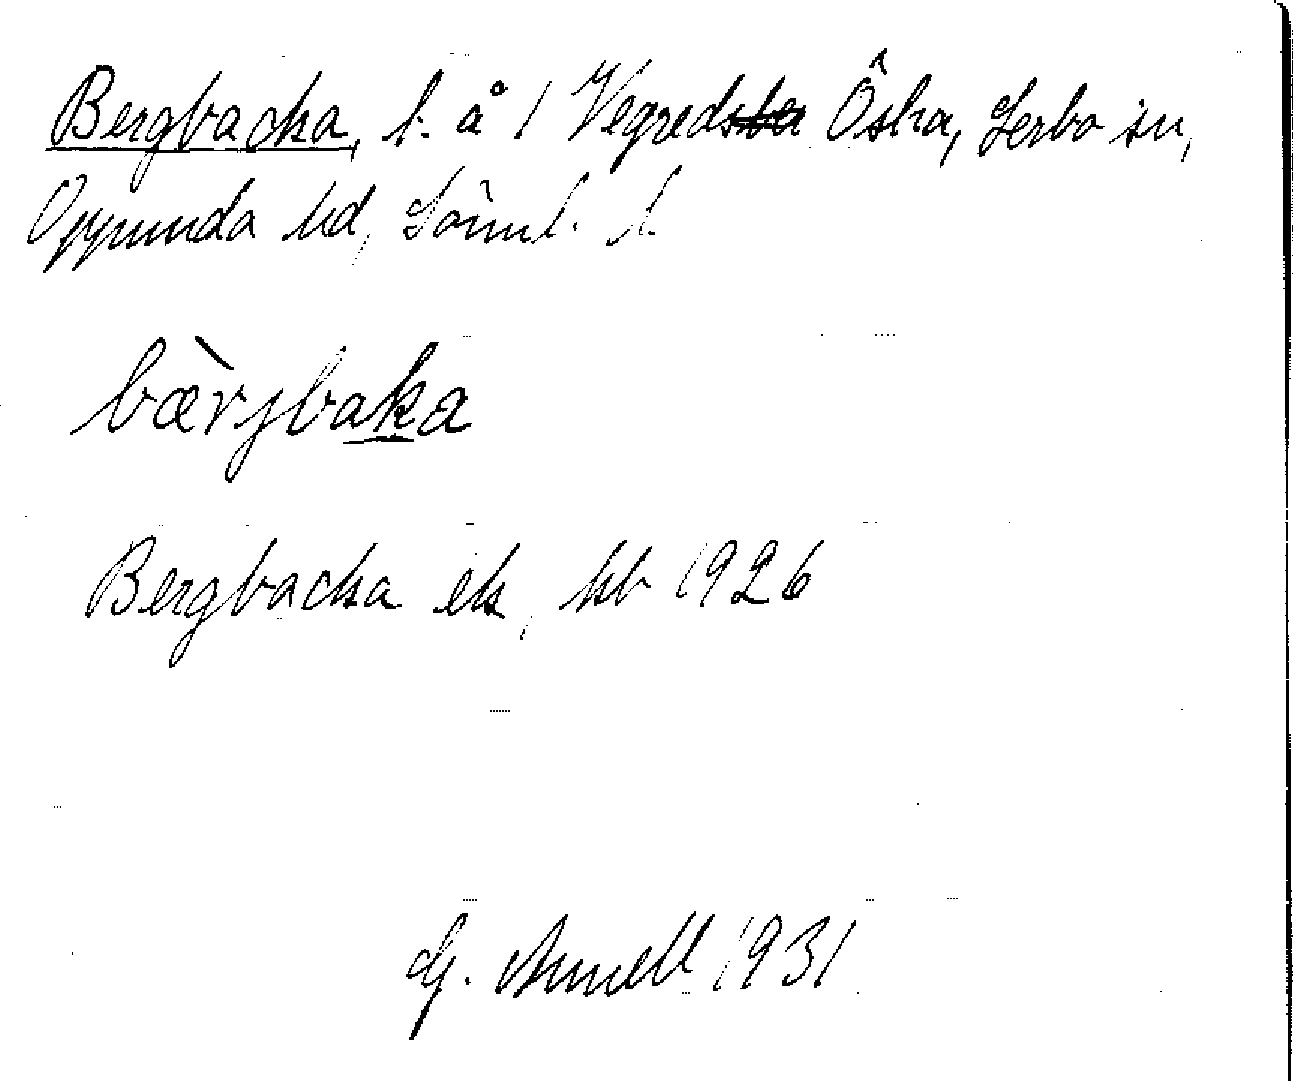 Bergbacka, l. å 1 Vegreds Östra, Lerbo sn,
Oppunda hd, Söml. l.
bærjbaka
Bergbacka ek, kb 1926
G. Annell 1931